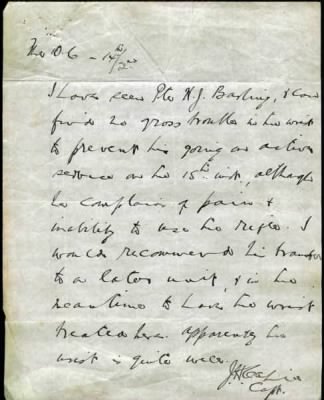 The O.C. – 14th
I have seen Pte H.J. Basling, & can
find no gross trouble in his wrist
to prevent his going on active
service on the 15th inst, although
he complains of pain &
inability to use his rifle. I
would recommend his transfer
to a later unit, & in the
meantime to have his wrist
treated here. Apparently his
wrist is quite well.
Capt.